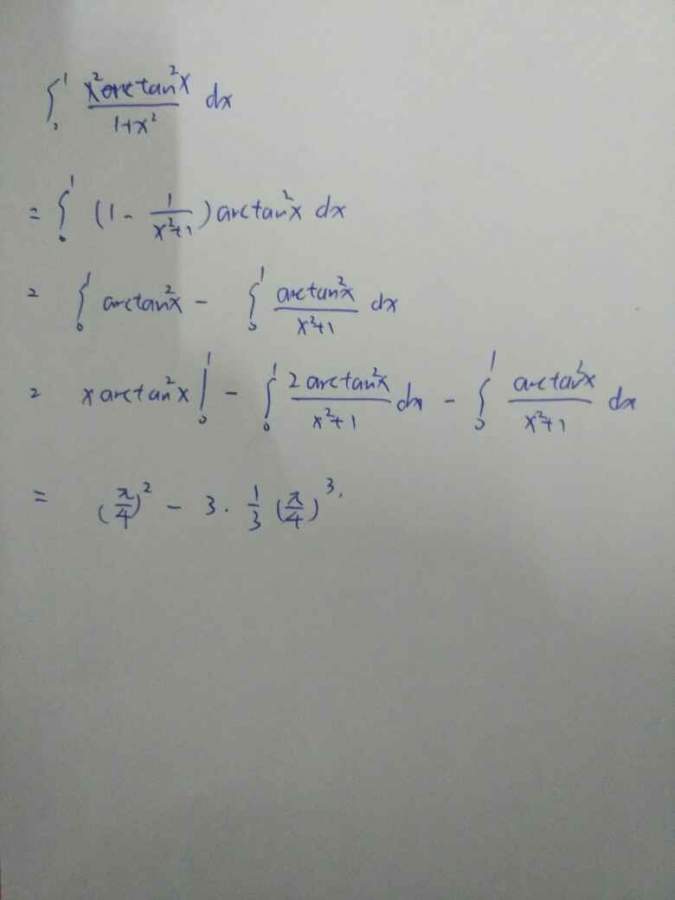 ∫₀¹ x² arctan² x / 1+x² dx
= ∫₀¹ (1 - 1/x²+1) arctan² x dx
= ∫₀¹ arctan² x - ∫₀¹ arctan² x / x²+1 dx
= x arctan² x |₀¹ - ∫₀¹ 2 arctan² x / x²+1 dx - ∫₀¹ arctan² x / x²+1 dx
= (π/4)² - 3 · 1/3 (π/4)³.